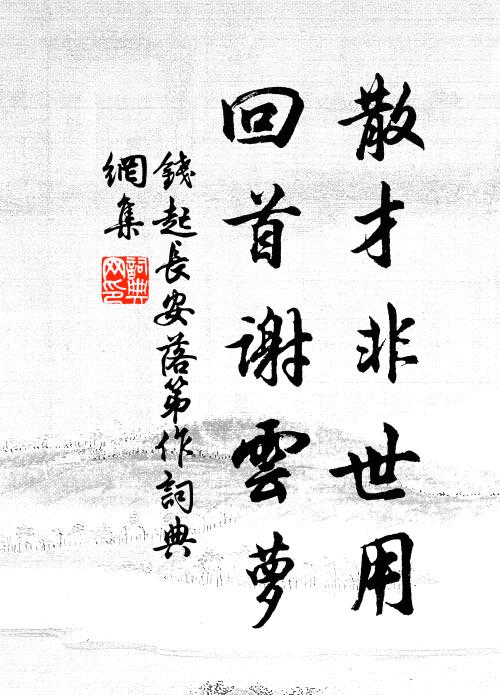 散才非世用
回首謝雲蘿
錢起長安落第作詞典
網集
詞典網印